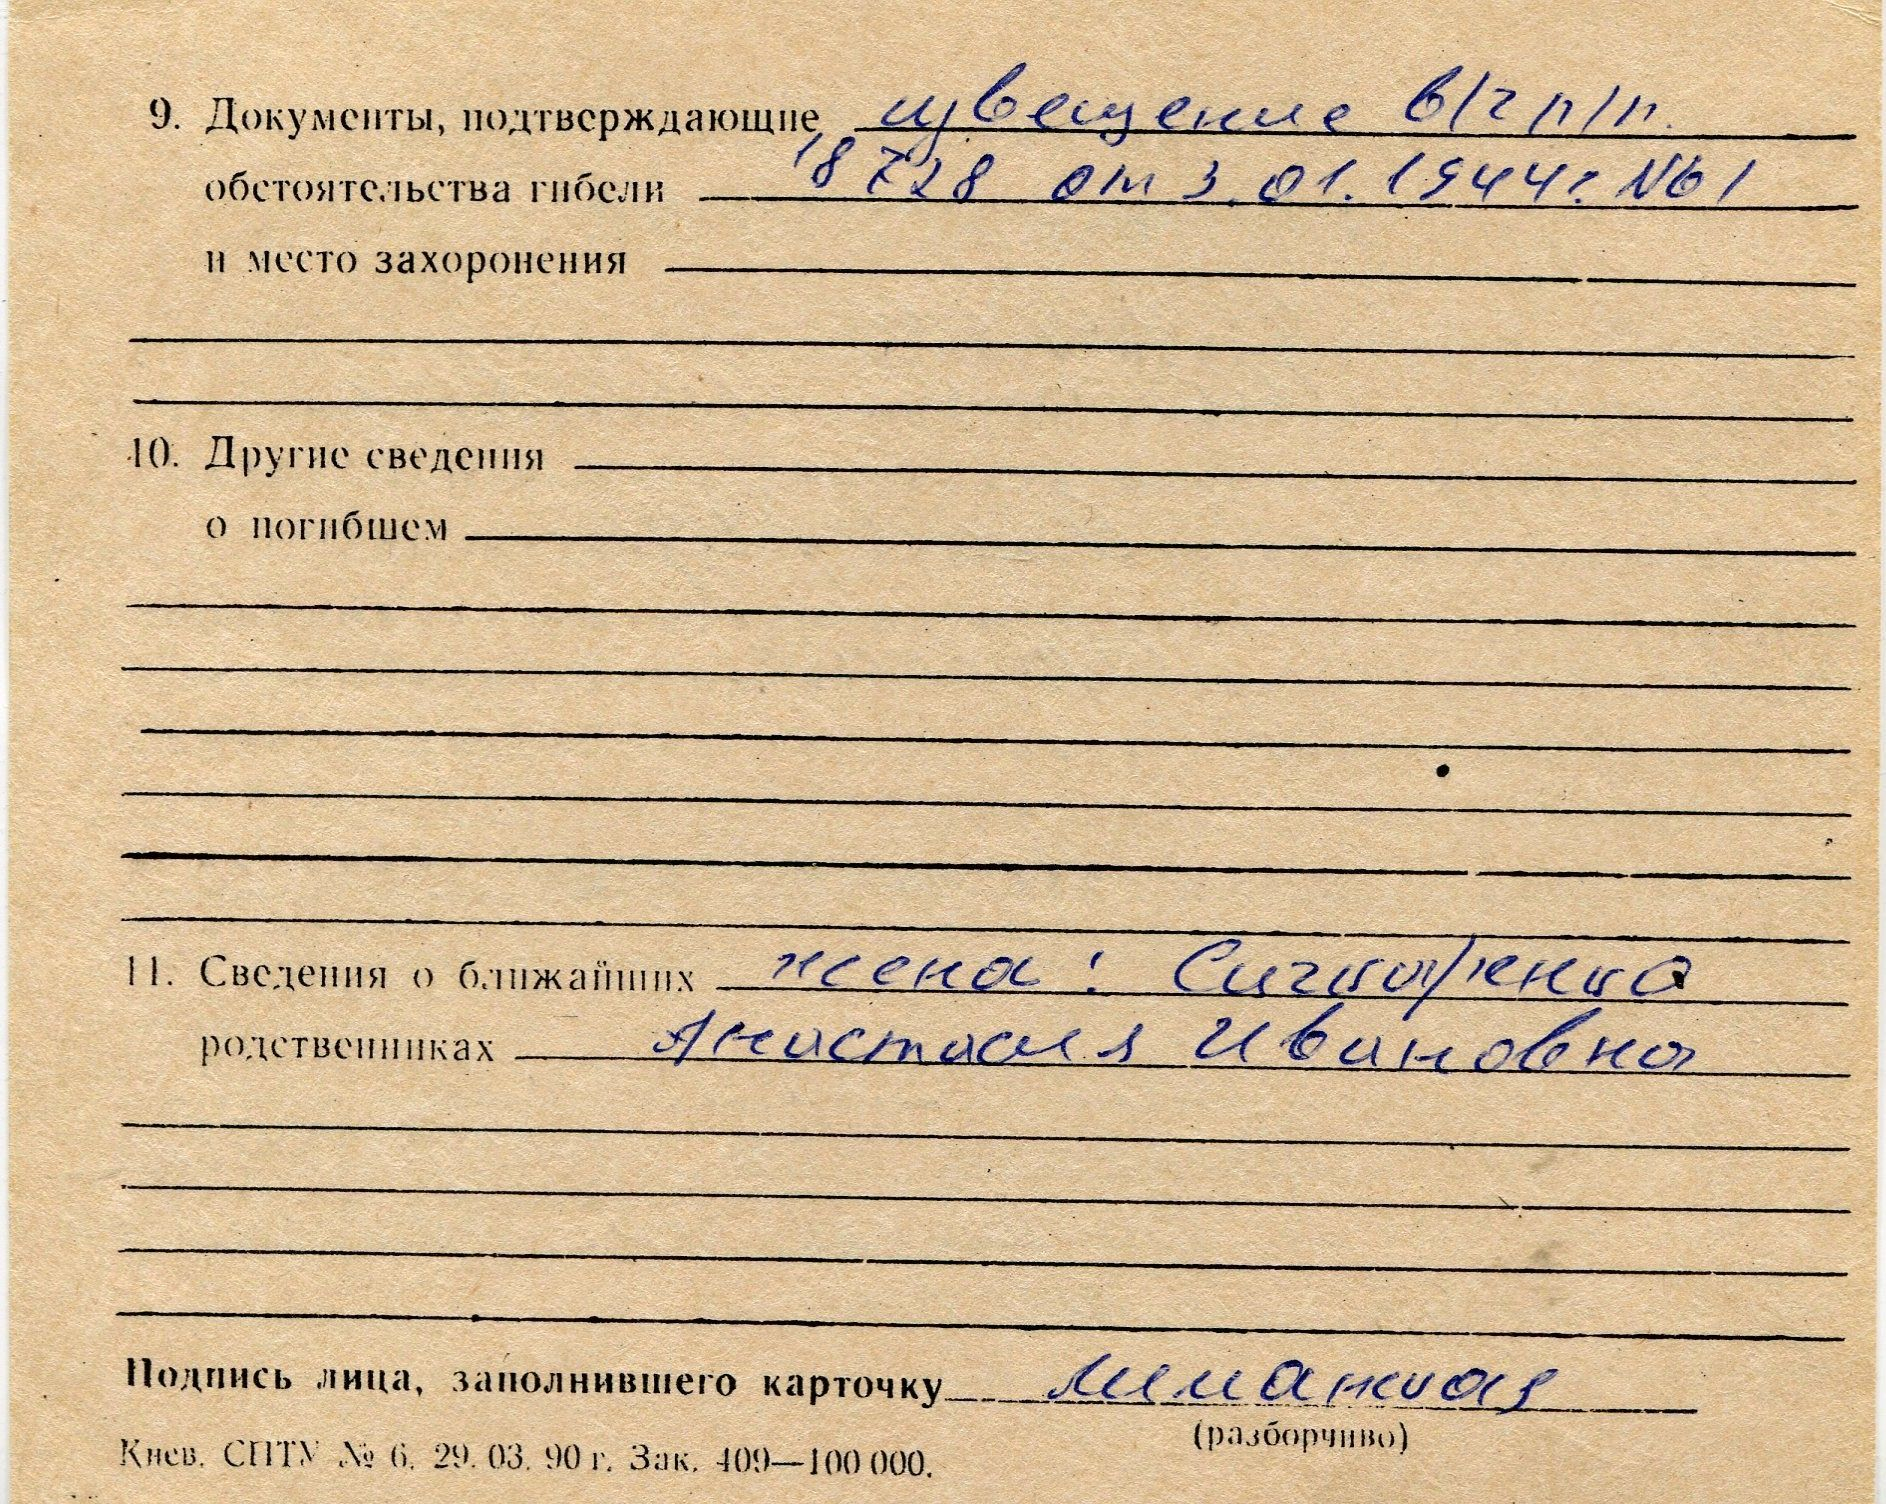 9. Документы, подтверждающие извещение в/ч п/п.
обстоятельства гибели 18728 от 3.01.1944г. №61
и место захоронения
10. Другие сведения
о погибшем
11. Сведения о ближайших жена:
родственниках Анастасия Ивановна
Подпись лица, заполнившего карточку
(разборчиво)
Киев. СПТУ № 6. 29. 03. 90 г. Зак. 409—100 000.